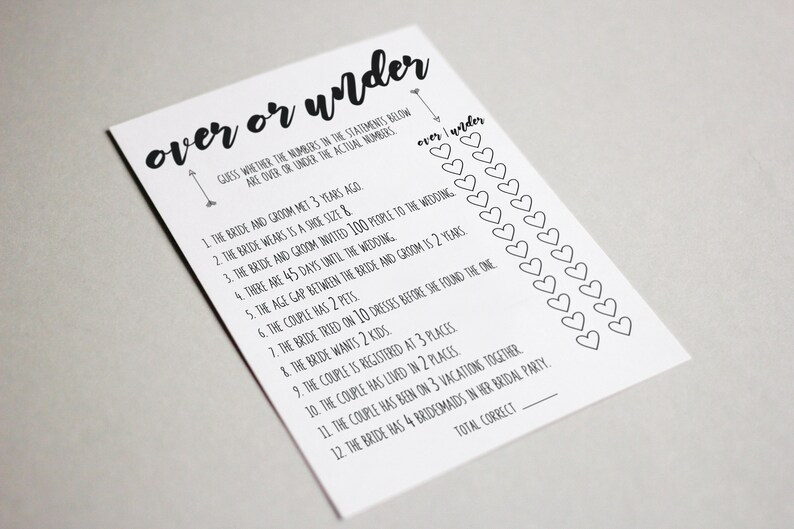 over or under
GUESS WHETHER THE NUMBERS IN THE STATEMENTS BELOW
ARE OVER OR UNDER THE ACTUAL NUMBERS.
over | under
1. THE BRIDE AND GROOM MET 3 YEARS AGO.
2. THE BRIDE WEARS IS A SHOE SIZE 8.
3. THE BRIDE AND GROOM INVITED 100 PEOPLE TO THE WEDDING.
4. THERE ARE 45 DAYS UNTIL THE WEDDING.
5. THE AGE GAP BETWEEN THE BRIDE AND GROOM IS 2 YEARS.
6. THE COUPLE HAS 2 PETS.
7. THE BRIDE TRIED ON 10 DRESSES BEFORE SHE FOUND THE ONE.
8. THE BRIDE WANTS 2 KIDS.
9. THE COUPLE IS REGISTERED AT 3 PLACES.
10. THE COUPLE HAS LIVED IN 2 PLACES.
11. THE COUPLE HAS BEEN ON 3 VACATIONS TOGETHER.
12. THE BRIDE HAS 4 BRIDESMAIDS IN HER BRIDAL PARTY.
TOTAL CORRECT ______